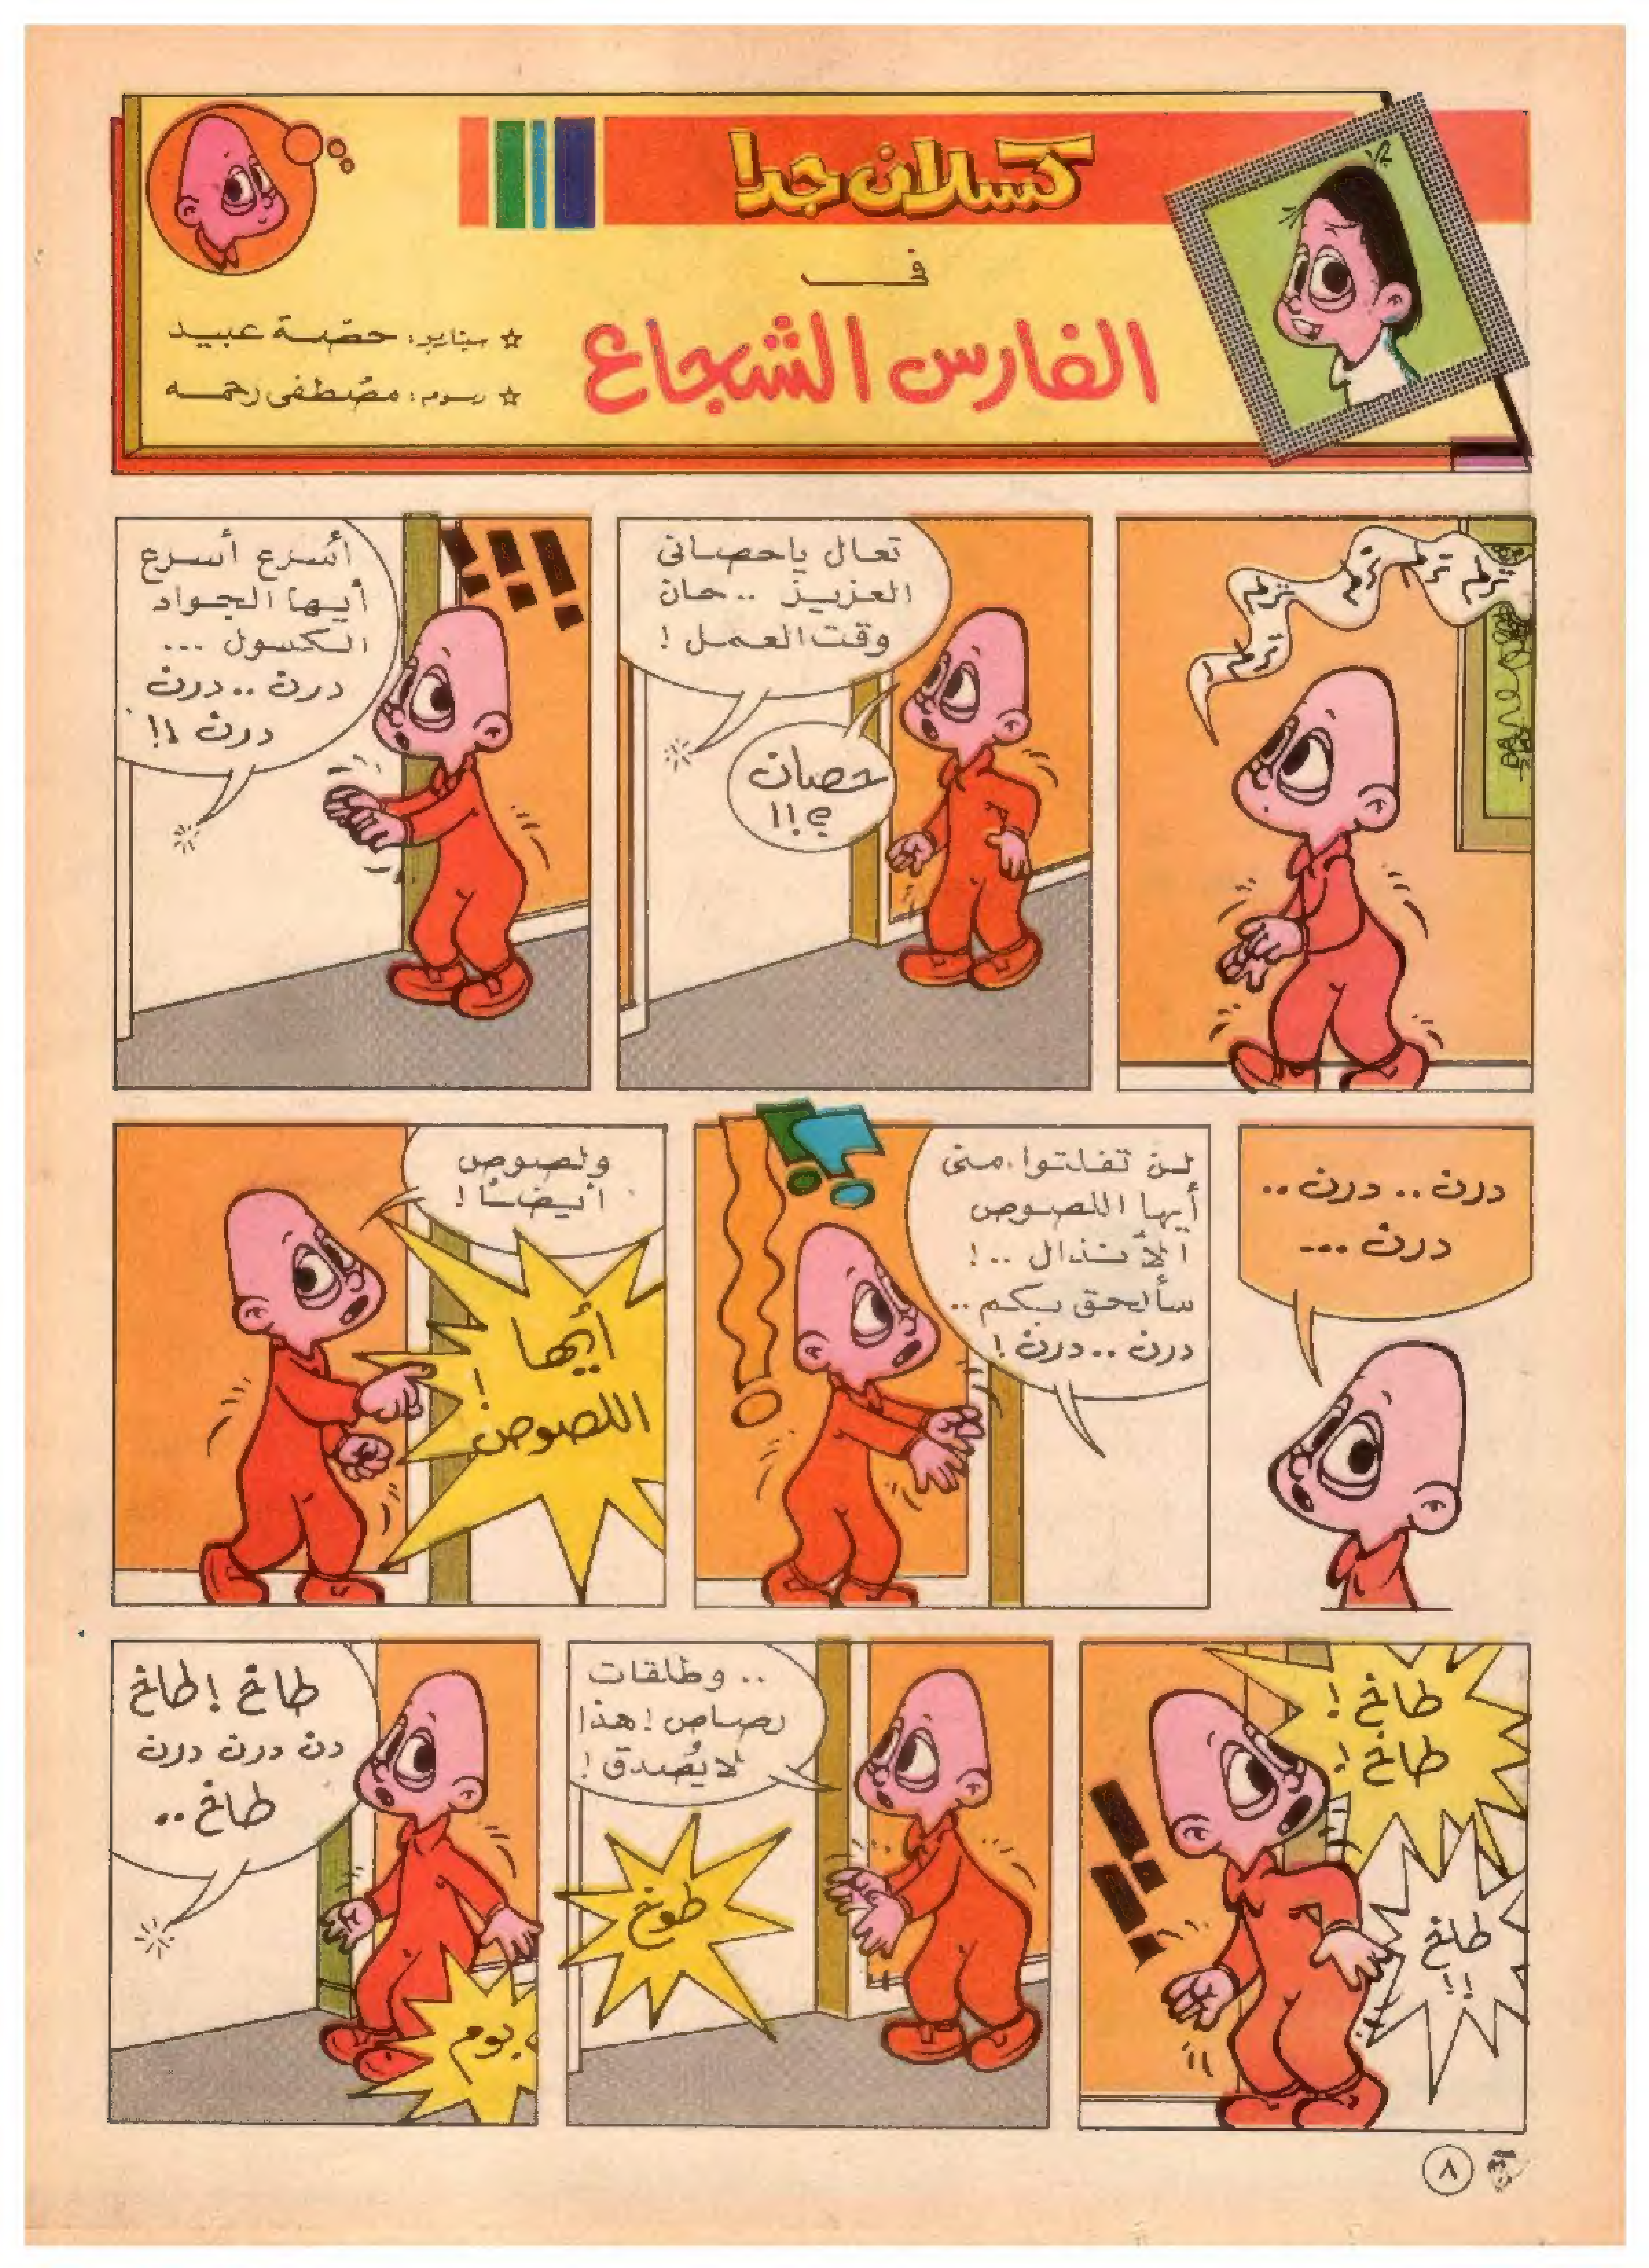 كسلان جدا
في
الفارس الشجاع
☆ سيناريو: حصة عبيد
☆ رسوم: مصطفى رحمه
ترلم ترلم ترلم ترلم ترلم
تعال ياحصانى
العزيز .. حان
وقت العمل !
حصان
؟!!
أسرع أسرع
أيها الجواد
الكسول ...
درن .. درن
درن !!
درن .. درن ..
درن ...
لن تفلتوا منى
أيها اللصوص
الأنذال .. !
سألحق بكم ..
درن .. درن !
ولصوص
أيضًا !
أيُها
اللصوص !
طاخ !
طاخ !
طاخ
!!
.. وطلقات
رصاص ! هذا
لايُصدق !
طوخ
طاخ ! طاخ
دن درن درن
طاخ ..
بوم
٨